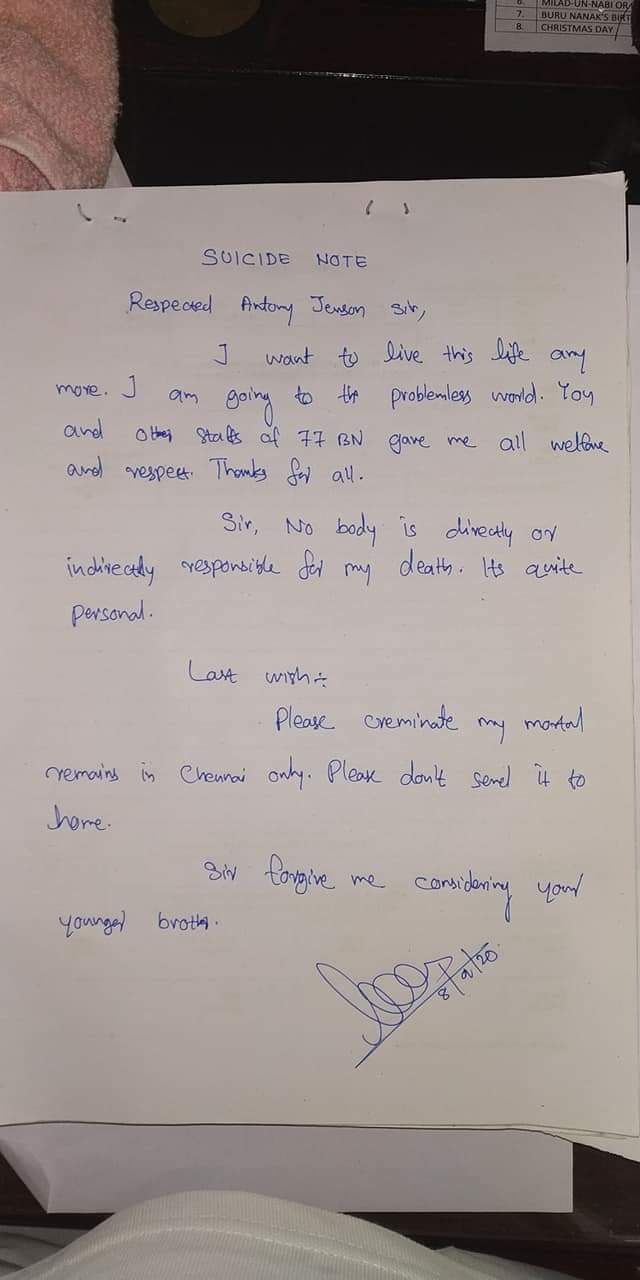 6. MILAD-UN-NABI OR
7. BURU NANAK'S BIRT
8. CHRISTMAS DAY
SUICIDE NOTE
Respected Antony Jenson Sir,
I want to live this life any
more. I am going to the problemless world. You
and other staffs of 77 BN gave me all welfare
and respect. Thanks for all.
Sir, No body is directly or
indirectly responsible for my death. Its quite
personal.
Last wish :-
Please creminate my mortal
remains in Chennai only. Please don't send it to
home.
Sir forgive me considering your
younger brother.
8/9/20